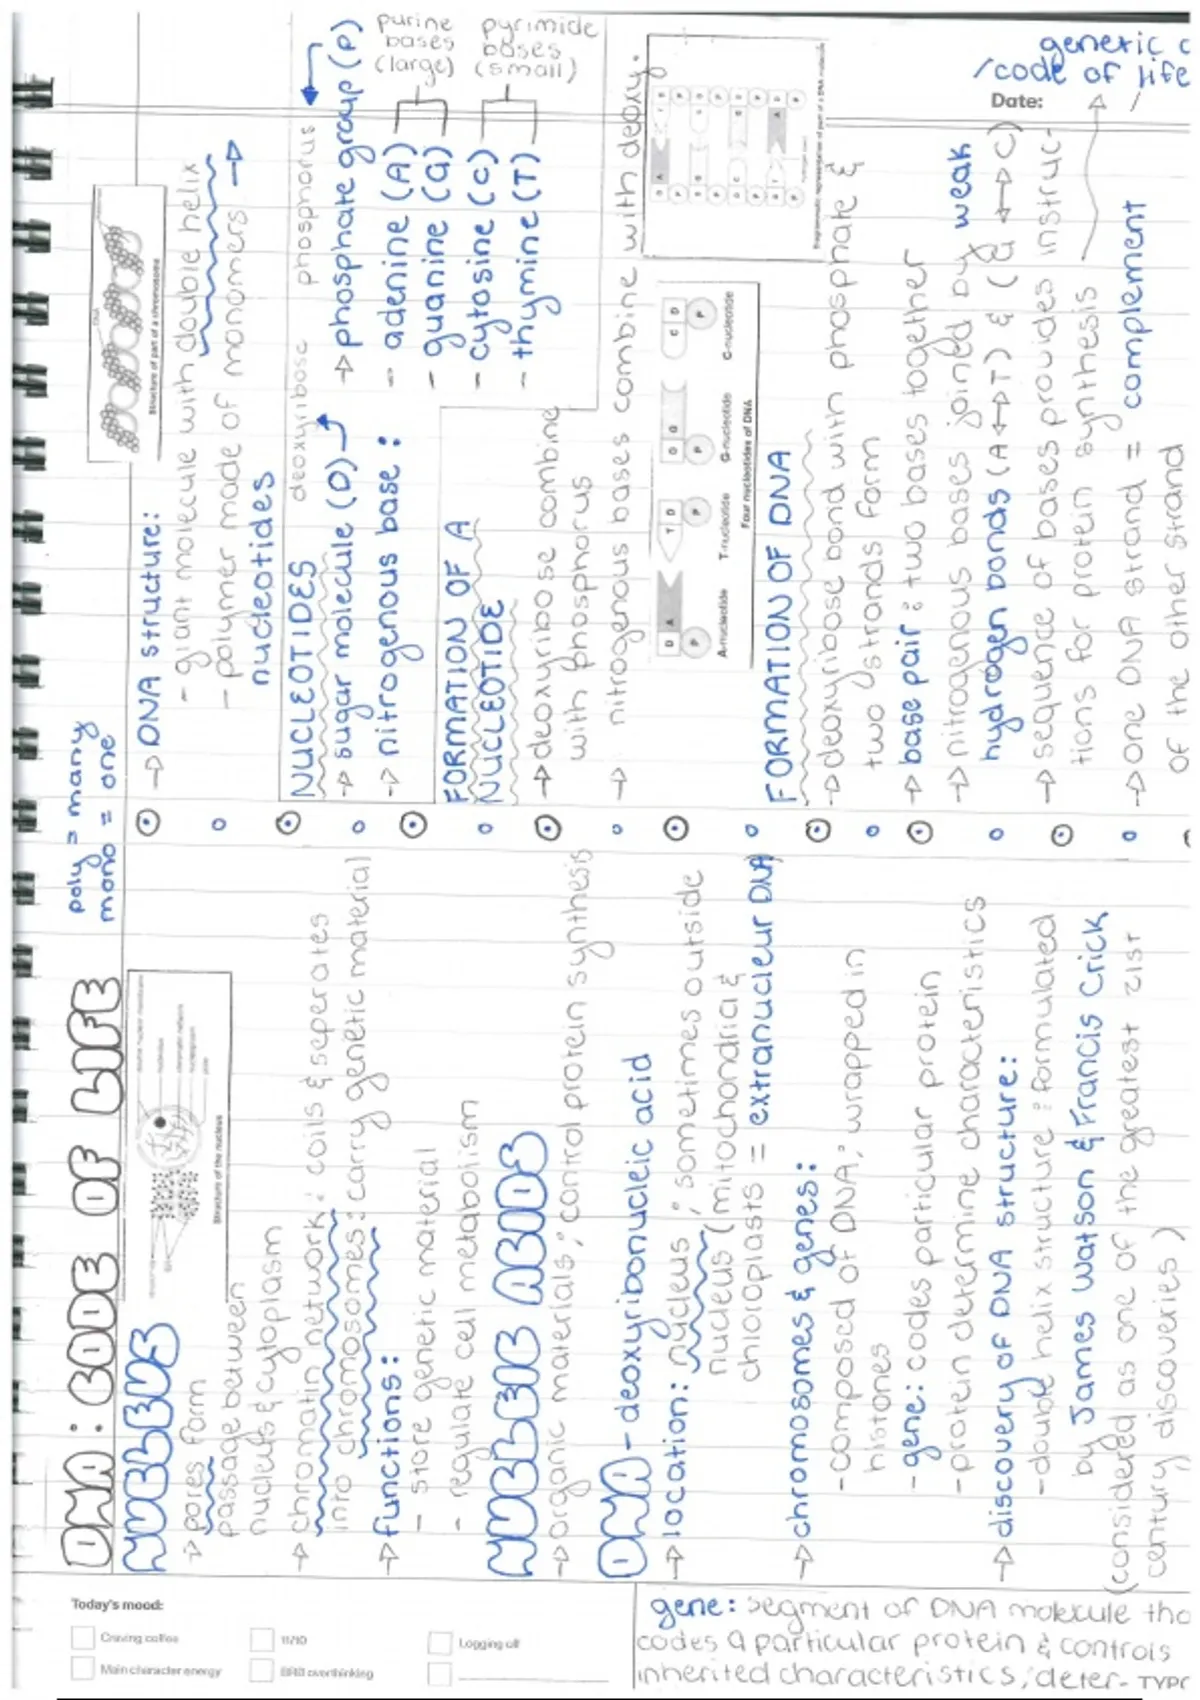 DNA: CODE OF LIFE
poly = many
mono = one
NUCLEUS
→ pores form
passage between
nucleus & cytoplasm
Structure of the nucleus
→ chromatin network: coils & seperates
into chromosomes: carry genetic material
→ functions:
- store genetic material
- regulate cell metabolism
NUCLEIC ACIDS
→ organic materials; control protein synthesis
DNA - deoxyribonucleic acid
→ location: nucleus; sometimes outside
nucleus (mitochondria &
chloroplasts = extranucleur DNA)
→ chromosomes & genes:
- composed of DNA; wrapped in
histones
- gene: codes particular protein
- protein determine characteristics
→ discovery of DNA structure:
- double helix structure: formulated
by James Watson & Francis Crick
(considered as one of the greatest 21st
century discoveries)
→ DNA structure:
- giant molecule with double helix
- polymer made of monomers →
nucleotides
DNA
Structure of part of a chromosome
NUCLEOTIDES
deoxyribose
phosphorus
→ sugar molecule (D)
→ phosphate group (P)
→ nitrogenous base:
- adenine (A)
- guanine (G)
- cytosine (C)
- thymine (T)
purine
bases
(large)
pyrimide
bases
(small)
FORMATION OF A
NUCLEOTIDE
→ deoxyribose combine
with phosphorus
→ nitrogenous bases combine with deoxy.
D A P
T D P
D G P
C D P
A-nucleotide
T-nucleotide
G-nucleotide
C-nucleotide
Four nucleotides of DNA
Diagrammatic representation of part of a DNA molecule
FORMATION OF DNA
→ deoxyribose bond with phosphate &
two strands form
→ base pair: two bases together
→ nitrogenous bases joined by weak
hydrogen bonds (A ↔ T) & (G ↔ C)
→ sequence of bases provides instruc-
tions for protein synthesis
→ one DNA strand = complement
of the other strand
genetic c
/code of life
Date:
Today's mood:
Craving coffee
11/10
Logging off
Main character energy
BRB overthinking
gene: segment of DNA molecule tha
codes a particular protein & controls
inherited characteristics; deter-
TYPE